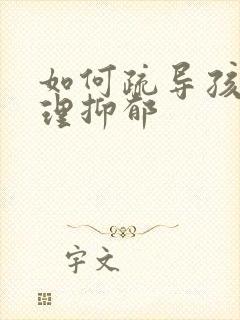 如何疏导孩
理抑郁
字文